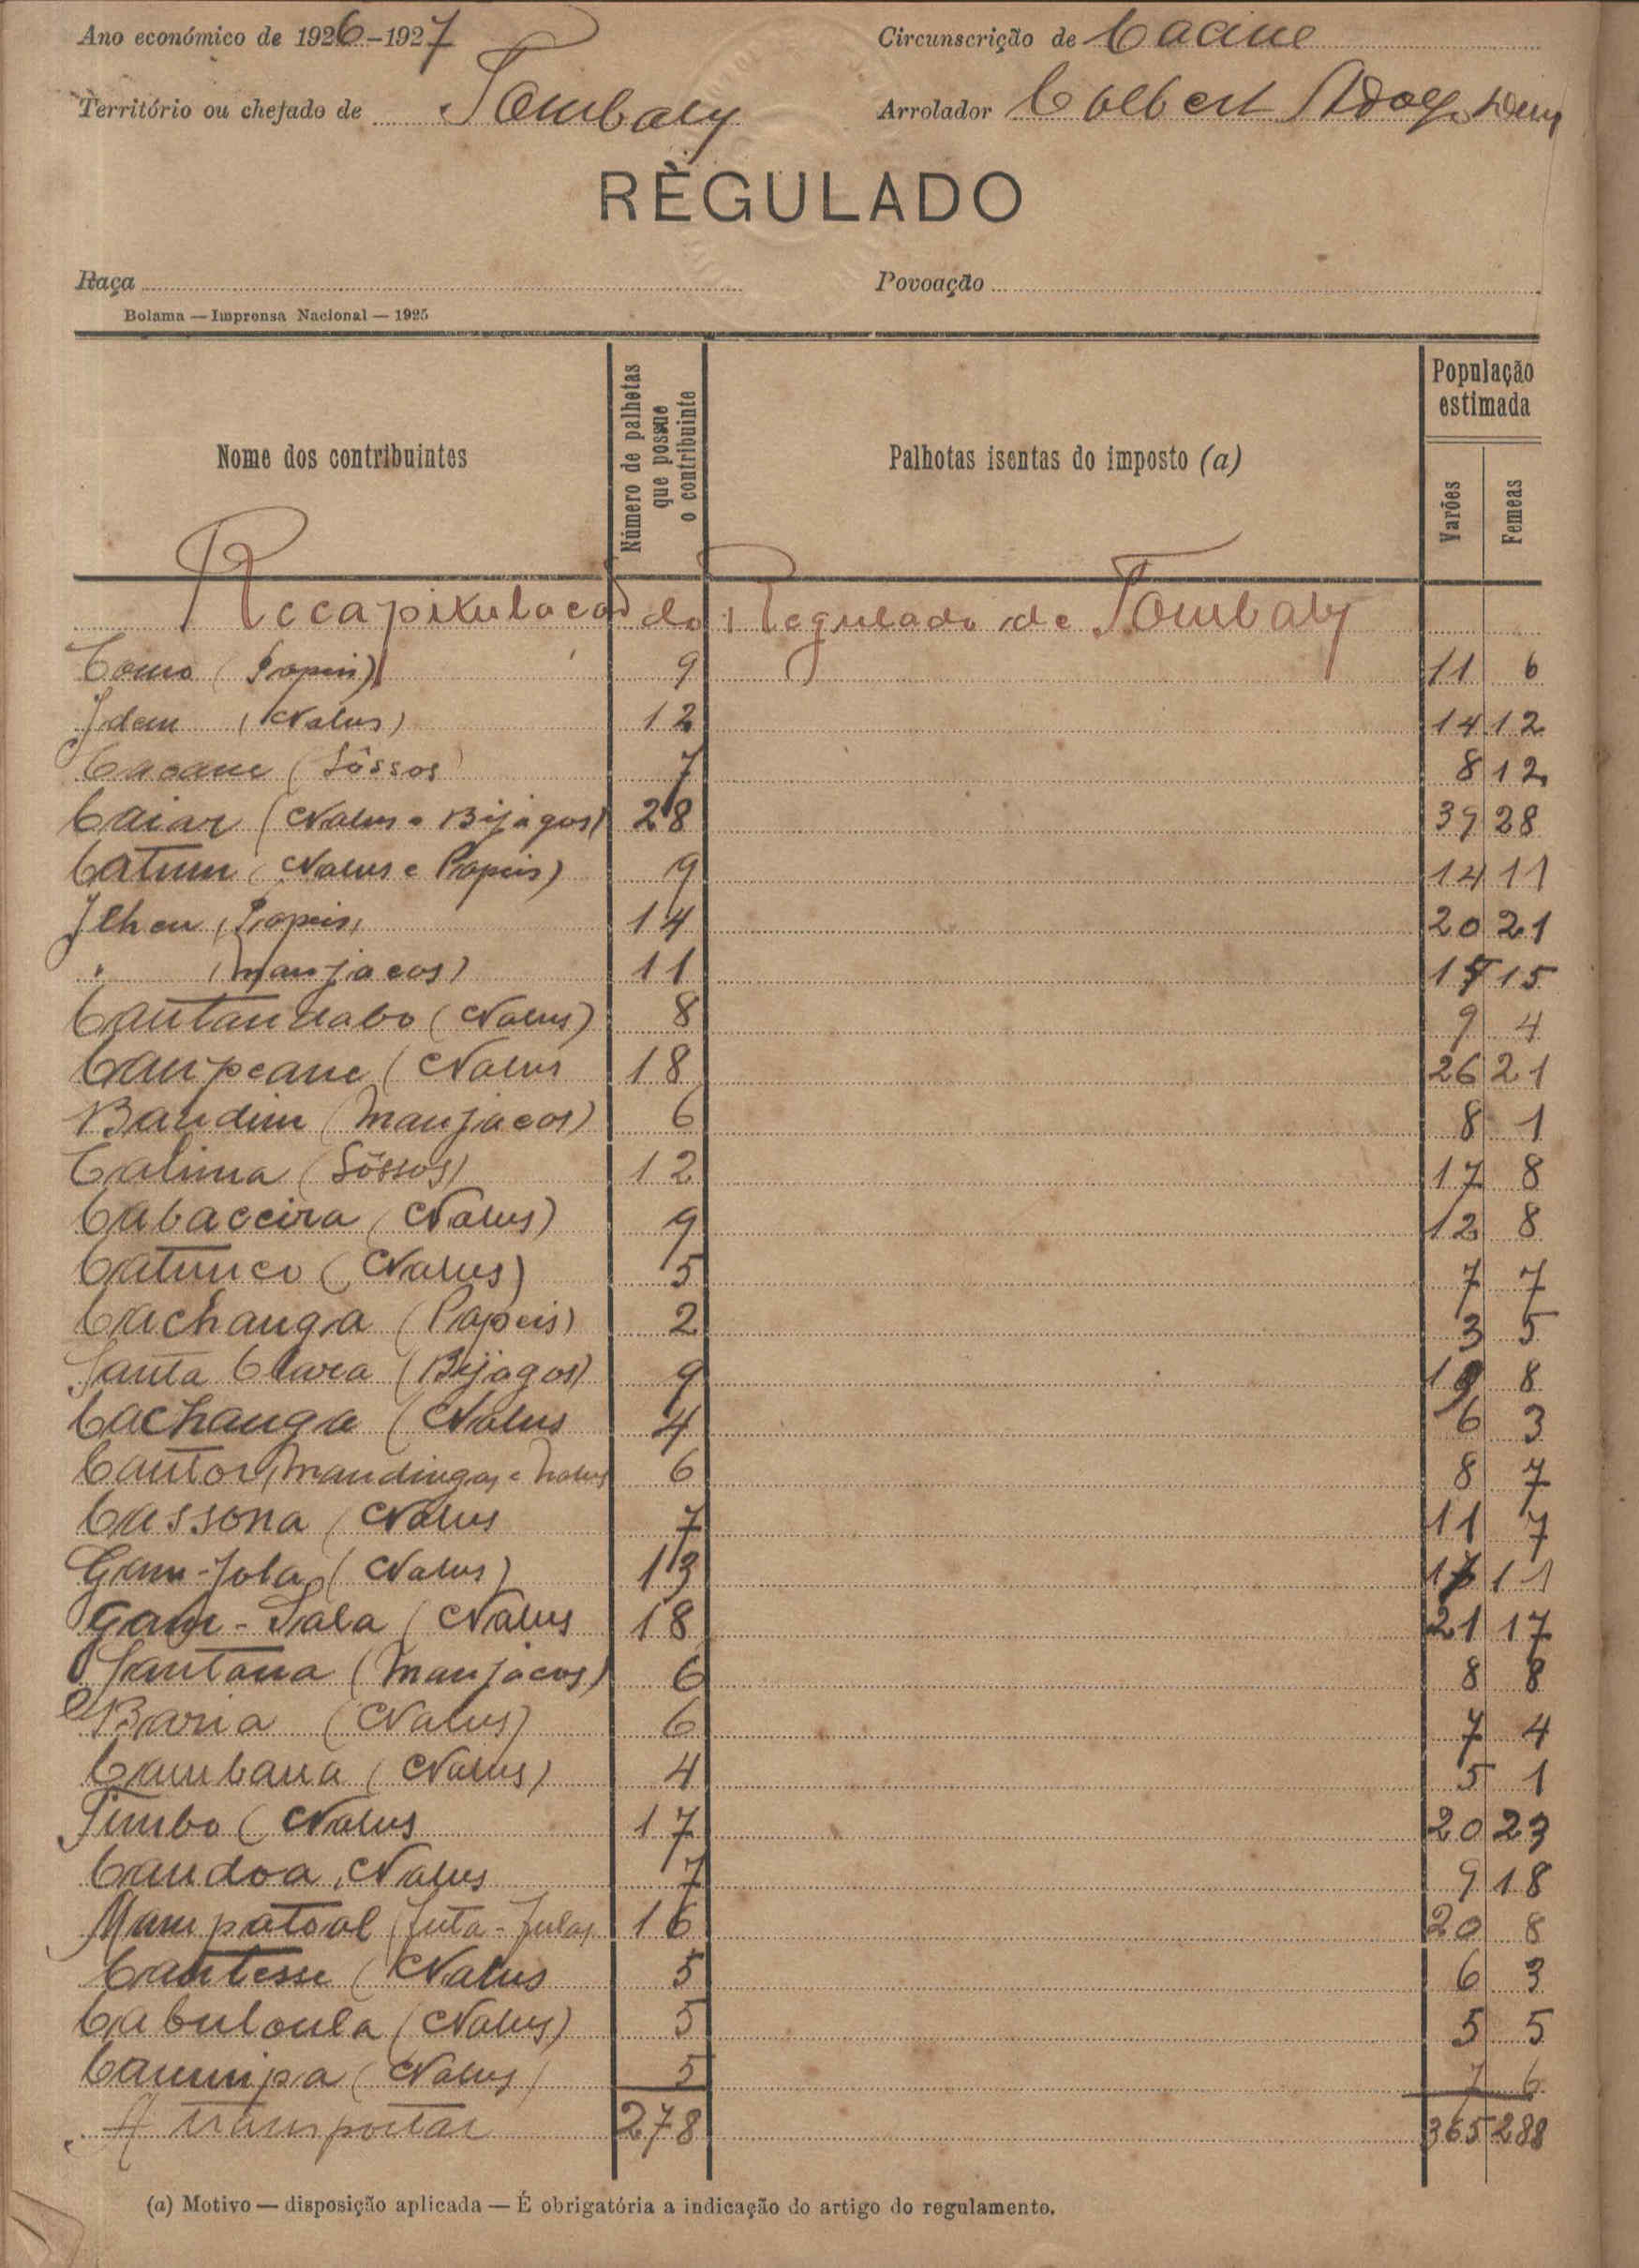 Ano económico de 1926-1927
Circunscrição de Cacine
Território ou chefado de Tombaly
Arrolador Colbert
RÈGULADO
Raça
Povoação
Bolama — Imprensa Nacional — 1925
Nome dos contribuintes
Número de palhetas que possue o contribuinte
Palhotas isentas do imposto (a)
População estimada
Varões
Femeas
Recapitulacão do Regulado de Tombaly
Como (Papeis) 9 11 6
Idem (Nalus) 12 14 12
(Sôssos) 7 8 12
Caiar (Nalus e Bijagos) 28 39 28
Catum (Nalus e Papeis) 9 14 11
Ilheu (Papeis) 14 20 21
" (Manjacos) 11 15
Cantannabo (Nalus) 8 9 4
Campeane (Nalus 18 26 21
Bandim (Manjacos) 6 8 1
Calima (Sôssos) 12 17 8
Cabaceira (Nalus) 9 12 8
Catunco (Nalus) 5 7 7
Cachanga (Papeis) 2 3 5
Santa Clara (Bijagos) 9 8
Cachanga (Nalus 4 6 3
Cantor (Mandingas e Nalus 6 8 7
Cassona (Nalus 7 11 7
Gam-Jola (Nalus) 13 11
Gam-Sala (Nalus 18 21 17
Santana (Manjacos) 6 8 8
Baria (Nalus) 6 7 4
Cambana (Nalus) 4 5 1
Timbo (Nalus 17 20 23
Candoa (Nalus 7 9 18
Mampatoal (Futa-Fulas 16 20 8
Cantesse (Nalus 5 6 3
Cabuloula (Nalus) 5 5 5
(Nalus) 5 7 6
A transportar 278 365 288
(a) Motivo — disposição aplicada — É obrigatória a indicação do artigo do regulamento.